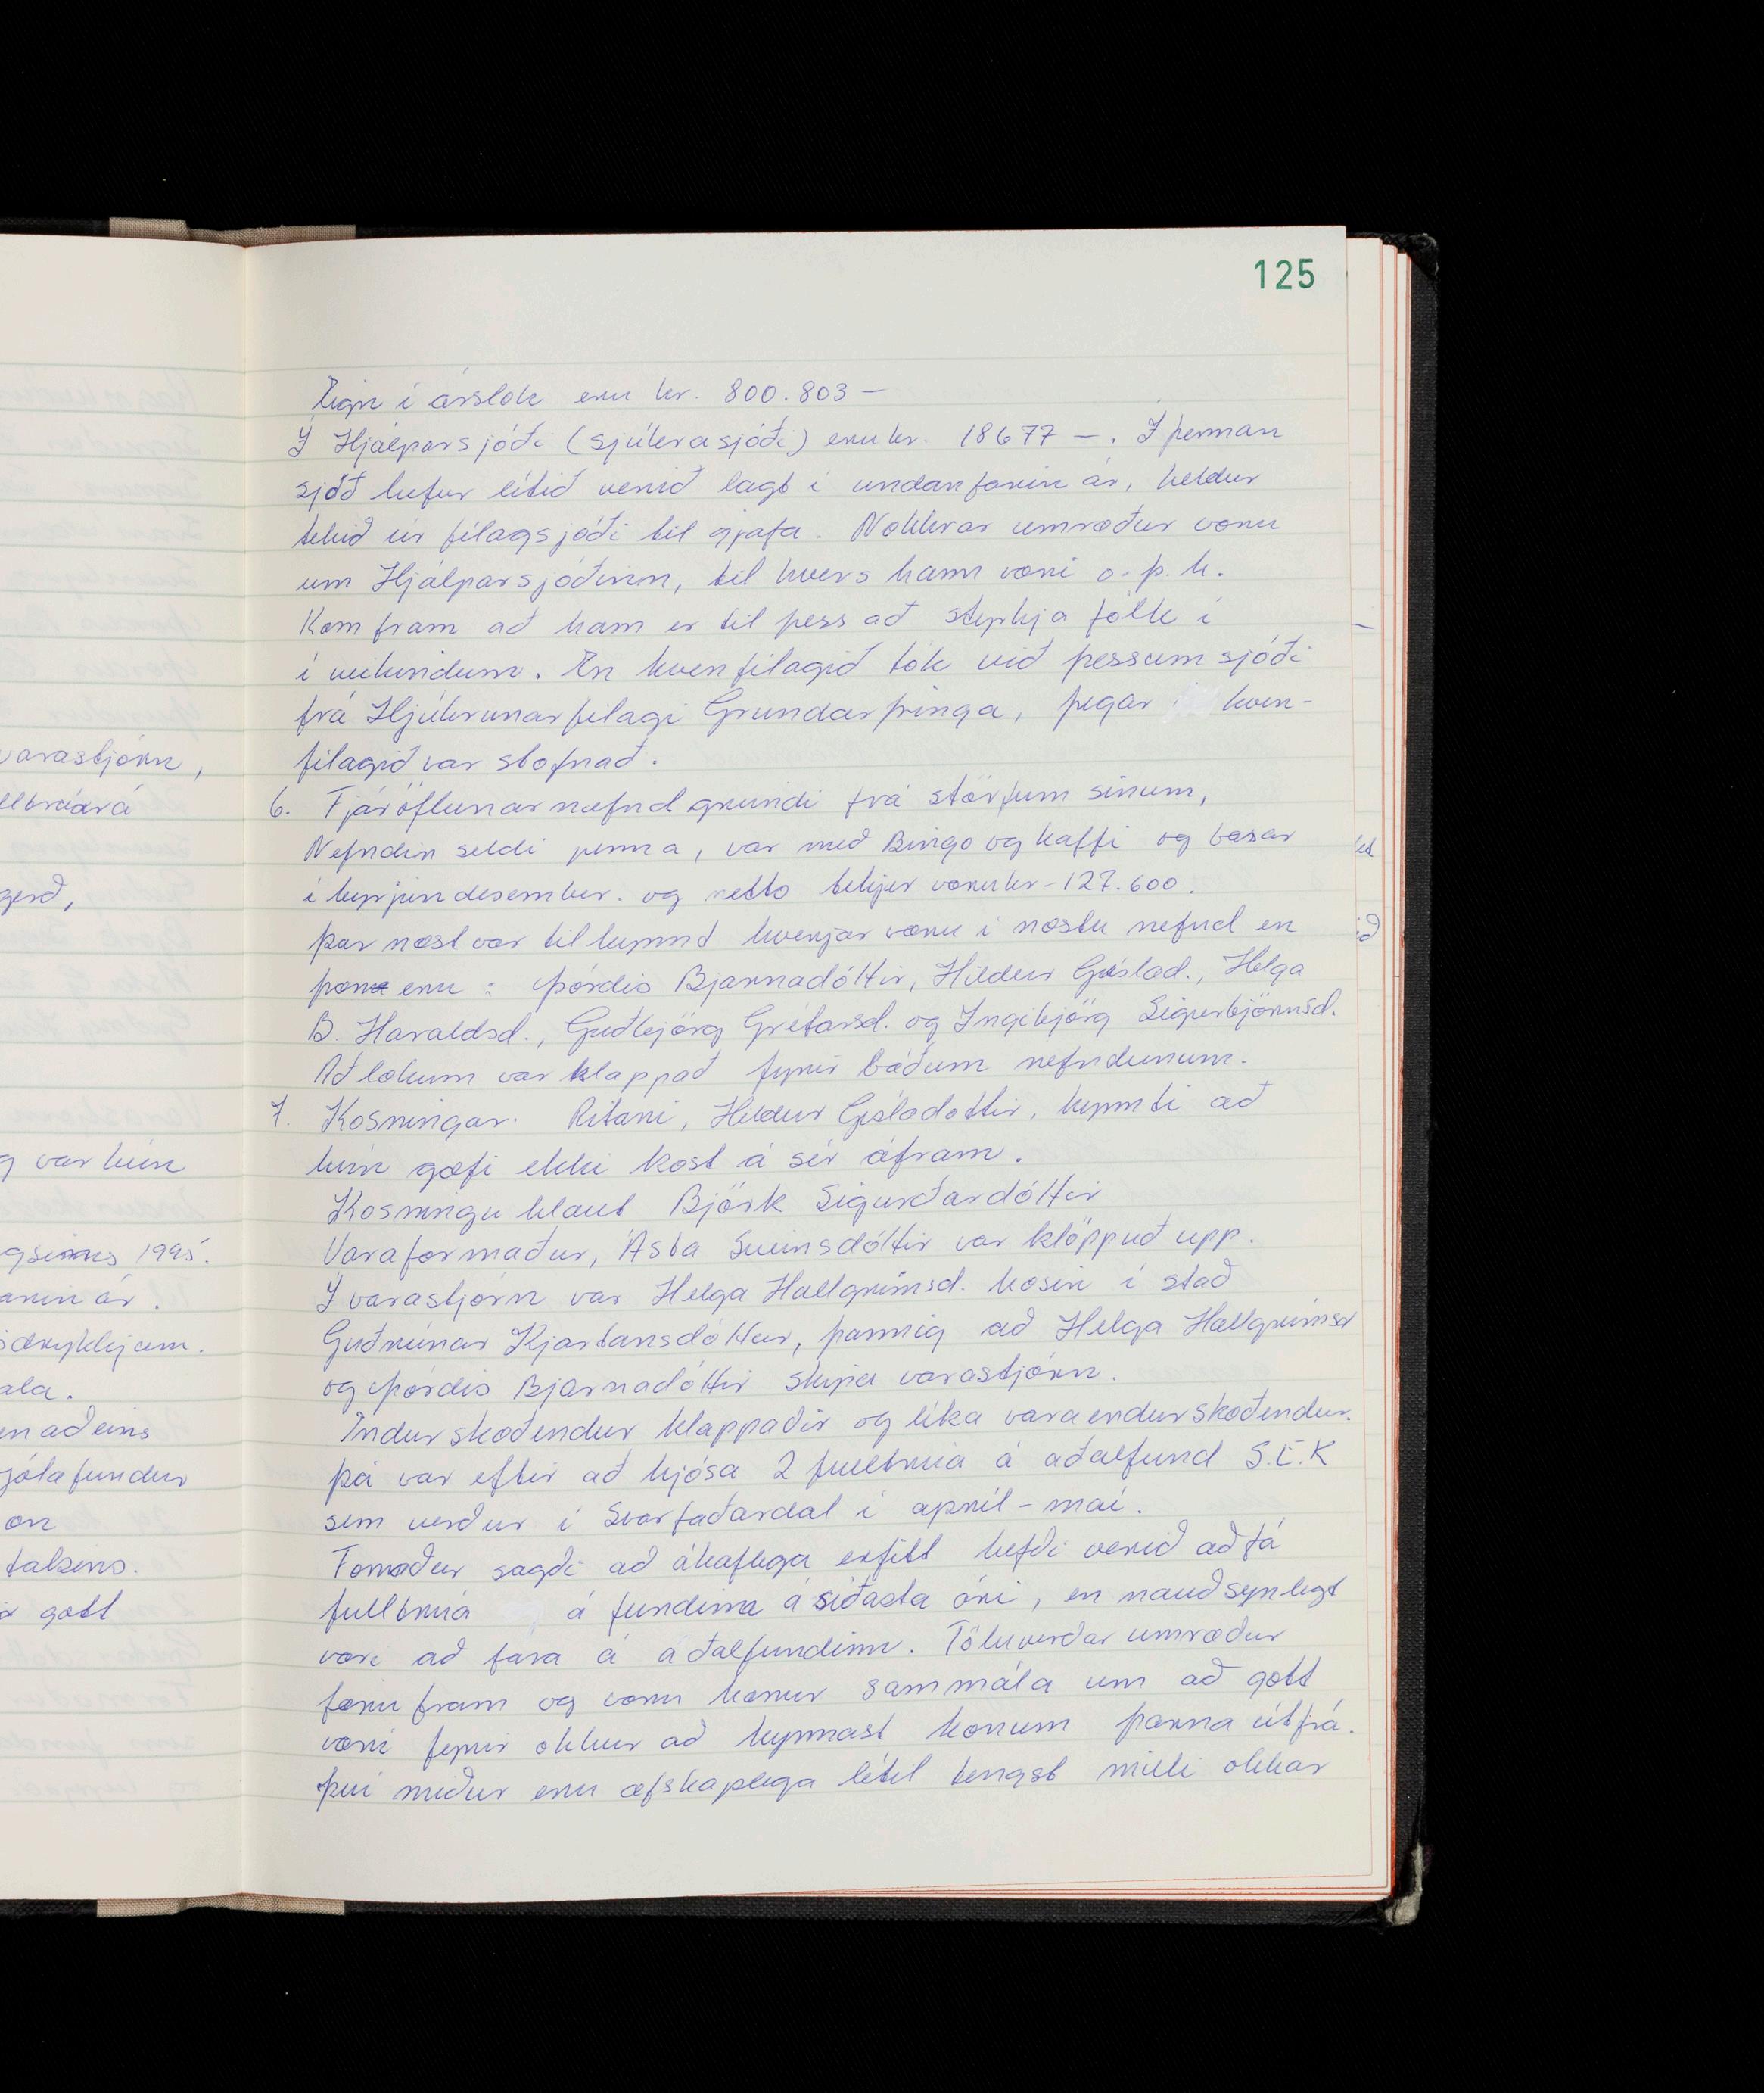 125
Eign í árslok eru kr. 800.803 —
Í Hjálparsjóði (sjúkrasjóði) eru kr. 18677 —. Í þennan
sjóð hefur lítið verið lagt í undanfarin ár, heldur
tekið úr félagsjóði til gjafa. Nokkrar umræður voru
um Hjálparsjóðinn, til hvers hann væri o.þ.h.
Kom fram að hann er til þess að styrkja fólk í
í veikindum. En kvenfélagið tók við þessum sjóði
frá Hjúkrunarfélagi Grundarþinga, þegar kven-
félagið var stofnað.
6. Fjáröflunarnefnd greindi frá störfum sínum,
Nefndin seldi penna, var með Bingo og kaffi og basar
í byrjun desember. og netto tekjur voru kr - 127.600.
þar næst var tilkynnt hverjar væru í næstu nefnd en
þær eru : Þórdís Bjarnadóttir, Hildur Gíslad., Helga
B. Haraldsd., Guðbjörg Grétarsd. og Ingibjörg Sigurbjörnsd.
Að lokum var klappað fyrir báðum nefndunum.
7. Kosningar. Ritari, Hildur Gísladóttir, kynnti að
hún gæfi ekki kost á sér áfram.
Kosningu hlaut Björk Sigurðardóttir
Varaformaður, Ásta Sveinsdóttir var klöppuð upp.
Í varastjórn var Helga Hallgrímsd. kosin í stað
Guðrúnar Kjartansdóttur, þannig að Helga Hallgrímsd
og Þórdís Bjarnadóttir skipa varastjórn.
Endurskoðendur klappaðir og líka varaendurskoðendur.
þá var eftir að kjósa 2 fulltrúa á aðalfund S.E.K
sem verður í Svarfaðardal í apríl - maí.
Formaður sagði að ákaflega erfitt hefði verið að fá
fulltrúa á fundinn á síðasta ári, en nauðsynlegt
væri að fara á aðalfundinn. Töluverðar umræður
fóru fram og voru konur sammála um að gott
væri fyrir okkur að kynnast konum þarna útfrá.
Því miður eru afskaplega lítil tengst milli okkar
varastjórn,
gerð,
g var hún
gsinns 1995.
arin ár.
ala.
en aðeins
jólafundur
on
talsins.
gott